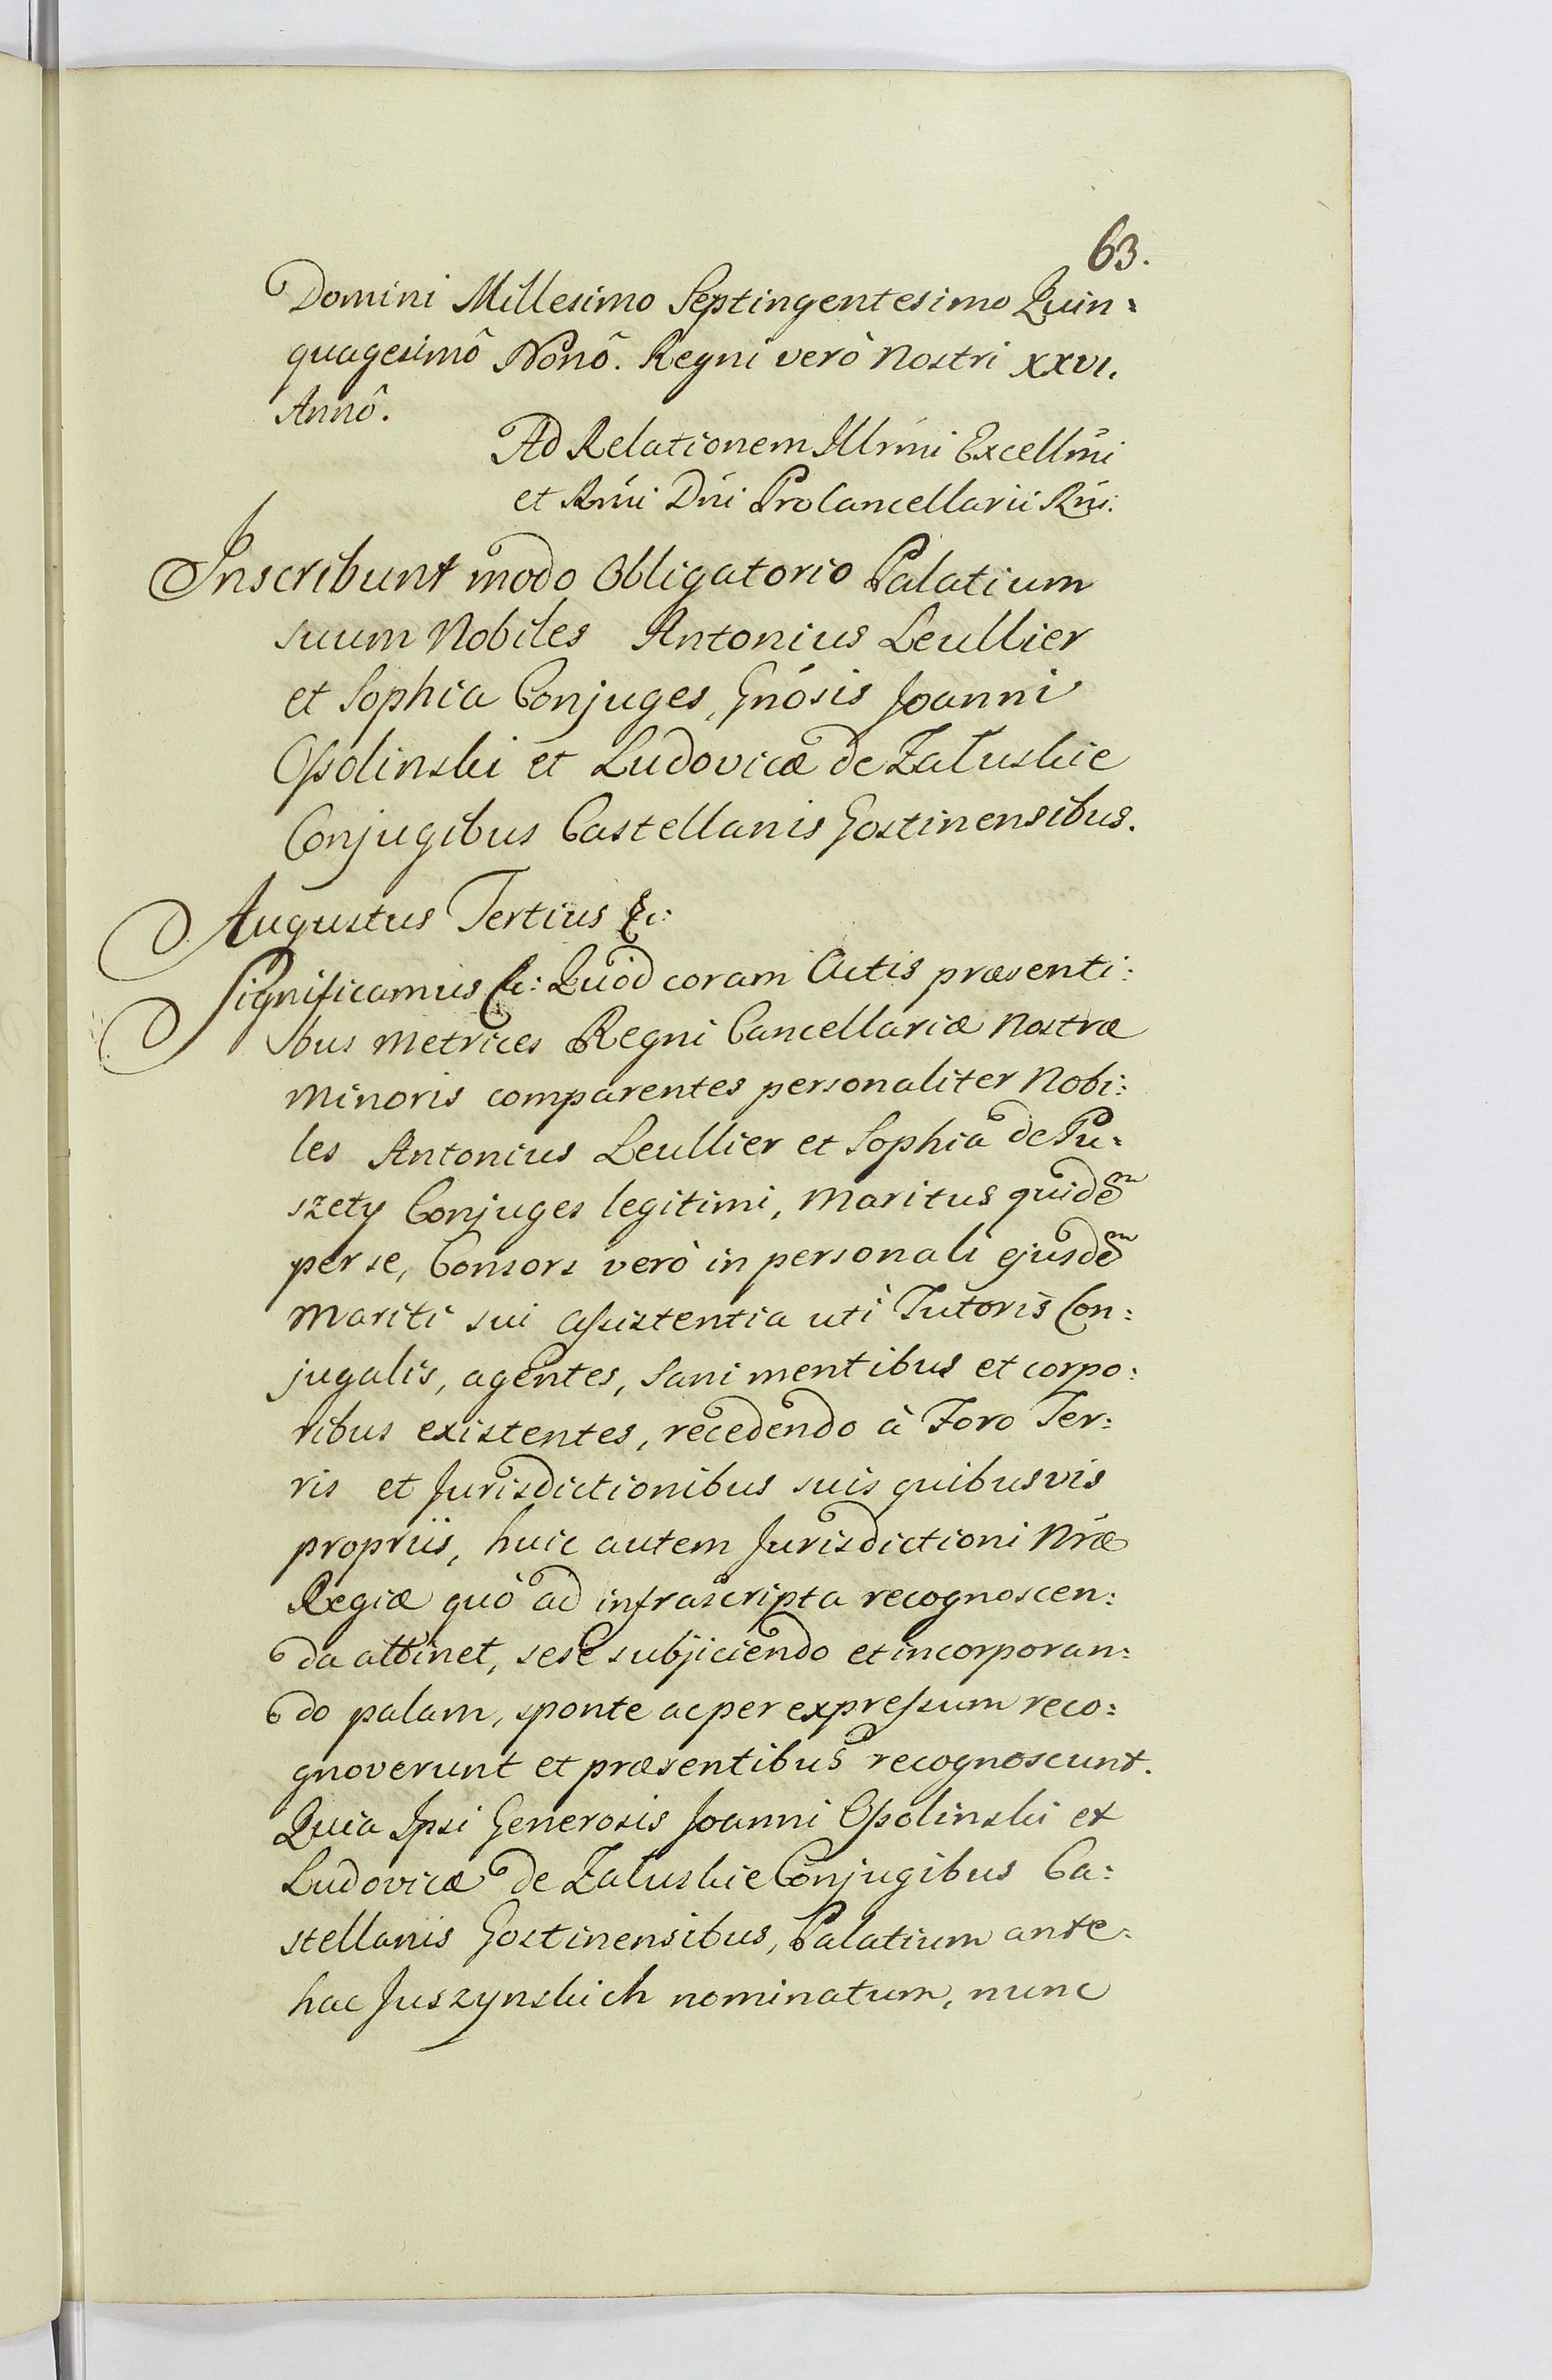 63.
Domini Millesimo Septingentesimo Quin=
quagesimô Nonô. Regni verò Nostri XXVI.
Annô.
Ad Relationem Illmi Excellmi
et Rmi Dni ProCancellarii Rni:
Inscribunt modo Obligatorio Palatium
suum Nobiles Antonius Leullier
et Sophia Conjuges, Gnosis Joanni
Ossolinski et Ludovicæ de Załuskie
Conjugibus Castellanis Gostinensibus.
Augustus Tertius &c:
Significamus &c: Quod coram Actis præsenti:
bus Metrices Regni Cancellariæ Nostræ
Minoris comparentes personaliter Nobi:
les Antonius Leullier et Sophia de Pu=
szety Conjuges legitimi, Maritus quidem
per se, Consors verò in personali ejusdem
Mariti sui assistentia uti Tutoris Con:
jugalis, agentes, sani mentibus et corpo:
ribus existentes, recedendo à Foro Ter:
ris et Jurisdictionibus suis quibusvis
propriis, huic autem Jurisdictioni Nræ
Regiæ quò ad infrascripta recognoscen:
da attinet, sese subjiciendo et incorporan:
do palam, sponte ac per expressum reco:
gnoverunt et præsentibus recognoscunt.
Quia Ipsi Generosis Joanni Ossolinski et
Ludovicæ de Załuskie Conjugibus Ca:
stellanis Gostinensibus, Palatium ante=
hac Juszynskich nominatum, nunc